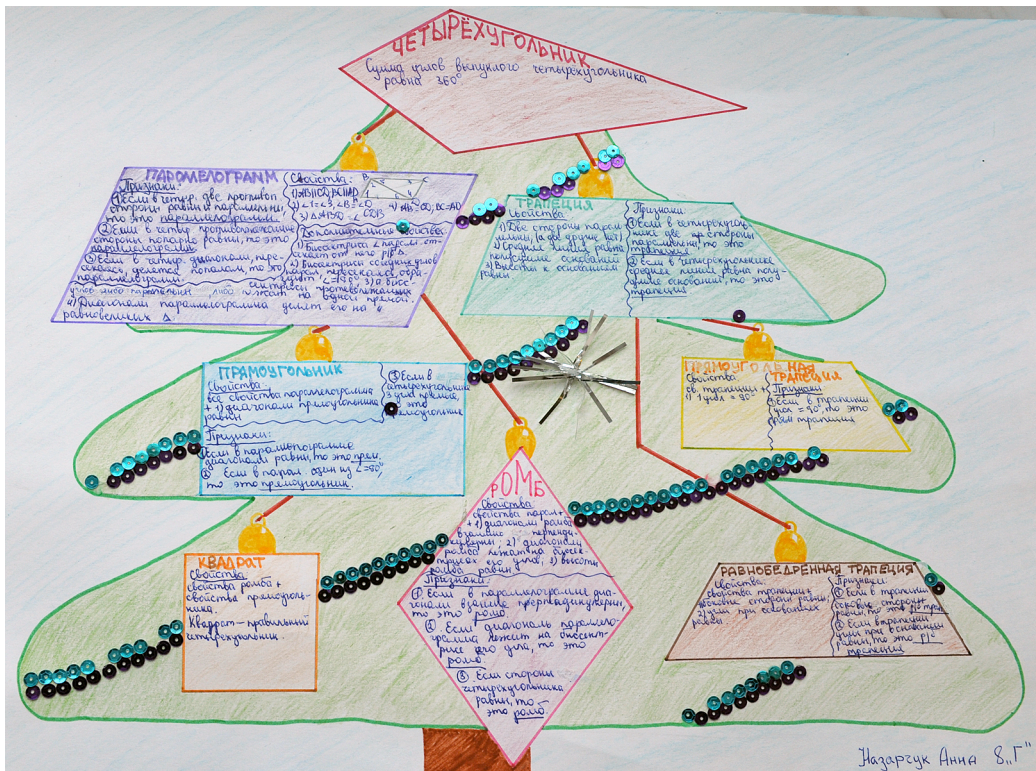 ЧЕТЫРЁХУГОЛЬНИК
Сумма углов выпуклого четырёхугольника
равна 360°
ПАРОМЕЛОГРАММ
Признаки:
1) Если в четыр. две противоп.
стороны равны и параллельны,
то это параллелограмм
2) Если в четыр. противоположные
стороны попарно равны, то это
параллелограмм
3) Если в четыр. диагонали, пере-
секаясь, делятся пополам, то это
параллелограмм
Свойства:
1) AB||CD, BC||AD
2) ∠1=∠3, ∠B=∠D
3) ΔABD = ΔCDB
4) AB=CD, BC=AD
Дополнительные свойства:
1) Биссектриса ∠ паралл. от-
секает от него р/б Δ.
2) Биссектрисы соседних углов
парал. пересекаясь, обра-
зуют ∠=90°, 3) а бисс-
ектрисы противолежащих
углов либо параллельны, либо лежат на одной прямой
4) Диагонали параллелограмма делят его на 4
равновеликих Δ.
ТРАПЕЦИЯ
Свойства:
1) Две стороны парал-
лельны, (а две другие нет)
2) Средняя линия равна
полусумме оснований
3) Высоты к основаниям
равны
Признаки:
1) Если в четырехуголь-
нике две пр. стороны
параллельны, то это
трапеция
2) Если в четырехугольнике
средняя линия равна полу-
сумме оснований, то это
трапеция
ПРЯМОУГОЛЬНИК
Свойства:
все свойства параллелограмма
+ 1) диагонали прямоугольника
равны
Признаки:
Если в параллелограмме
диагонали равны, то это прям.
2) Если в парал. один из ∠=90°,
то это прямоугольник.
3) Если в
четырехугольнике
3 угла прямые,
это
прямоугольник
ПРЯМОУГОЛЬНАЯ
ТРАПЕЦИЯ
Свойства:
св. трапеции +
1) 1 угол = 90°
Признаки
Если в трапеции
угол = 90°, то это
прям трапеция
РОМБ
Свойства:
свойства парал +
+ 1) диагонали ромба
взаимно перпенди-
кулярны; 2) диагонали
ромба лежат на биссек-
трисах его углов; 3) высоты
ромба равны
Признаки:
1) Если в параллелограмме диа-
гонали взаимно перпендикулярны,
то это ромб
2) Если диагональ паралло-
грамма лежит на биссект-
рисе его угла, то это
ромб.
3) Если стороны
четырехугольника
равны, то
это ромб.
КВАДРАТ
Свойства:
свойства ромба +
свойства прямоуголь-
ника.
Квадрат – правильный
четырехугольник.
РАВНОБЕДРЕННАЯ ТРАПЕЦИЯ
Свойства:
свойства трапеции +
боковые стороны равны,
2) углы при основаниях
равны
Признаки:
1) Если в трапеции
боковые стороны
равны, то это р/б трап.
2) Если в трапеции
углы при основании
равны, то это р/б
трапеция
Назарчук Анна 8„Г"